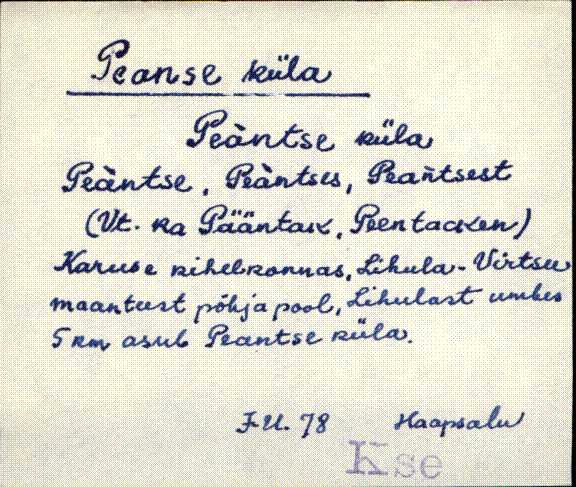 Peanse küla
Peàntse küla
Peàntse, Peàntses, Peañtsest
(Vt. ka Pääntak, Peentacken)
Karuse kihelkonnas, Lihula-Virtsu
maantest põhja pool, Lihulast umbes
5 km asub Peantse küla.
F.U. 78 Haapsalu
Kse